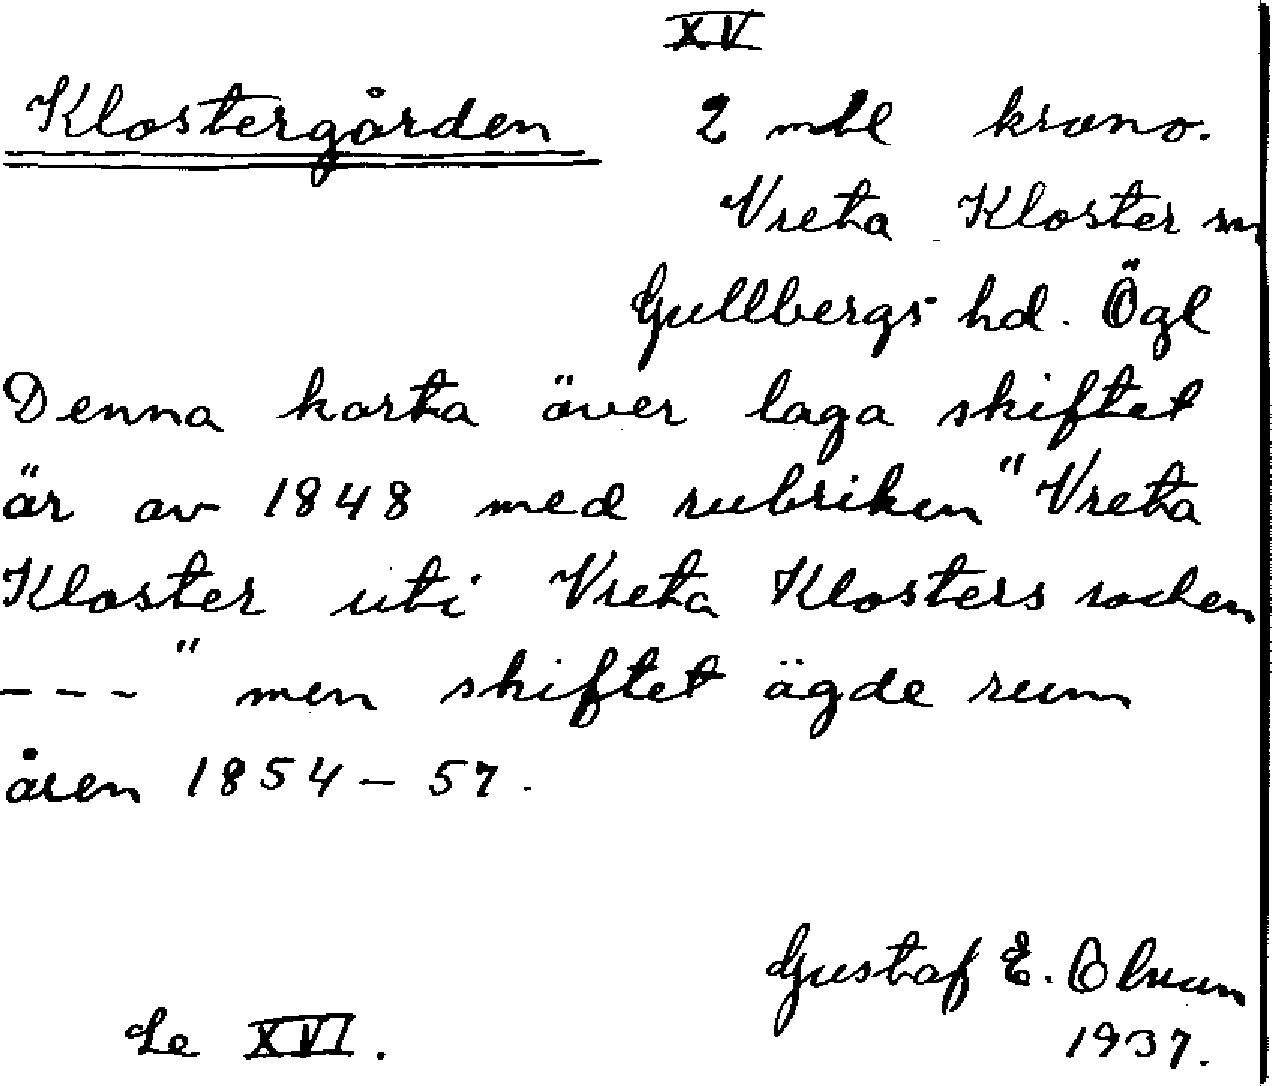 XV
Klostergården 2 mtl krono.
Vreta Kloster sn
Gullbergs hd. Ögl
Denna karta över laga skiftet
är av 1848 med rubriken "Vreta
Kloster uti Vreta Klosters socken
---" men skiftet ägde rum
åren 1854-57.
Gustaf E.
Se XVI. 1937.